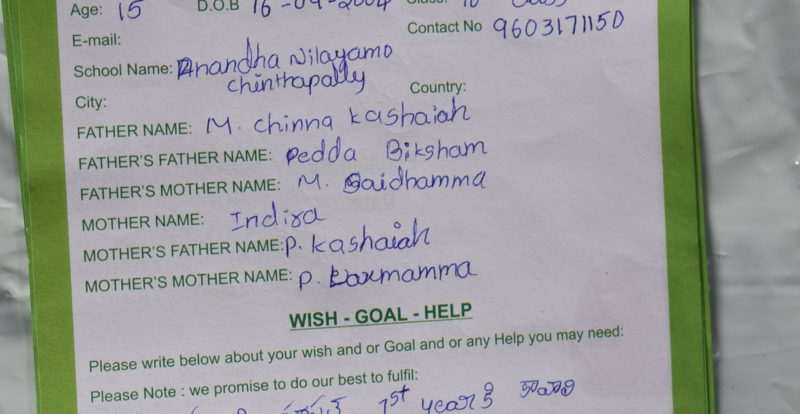 Age: 15 D.O.B 16-09-2004 Class: 10th Class
E-mail: Contact No 9603171150
School Name: Anandha Nilayamo
chinthapally
City: Country:
FATHER NAME: M. chinna kashaiah
FATHER'S FATHER NAME: Pedda Biksham
FATHER'S MOTHER NAME: M. Saidhamma
MOTHER NAME: Indira
MOTHER'S FATHER NAME: P. kashaiah
MOTHER'S MOTHER NAME: P. Laxmamma
WISH - GOAL - HELP
Please write below about your wish and or Goal and or any Help you may need:
Please Note : we promise to do our best to fulfil:
1st year కి కావాలి